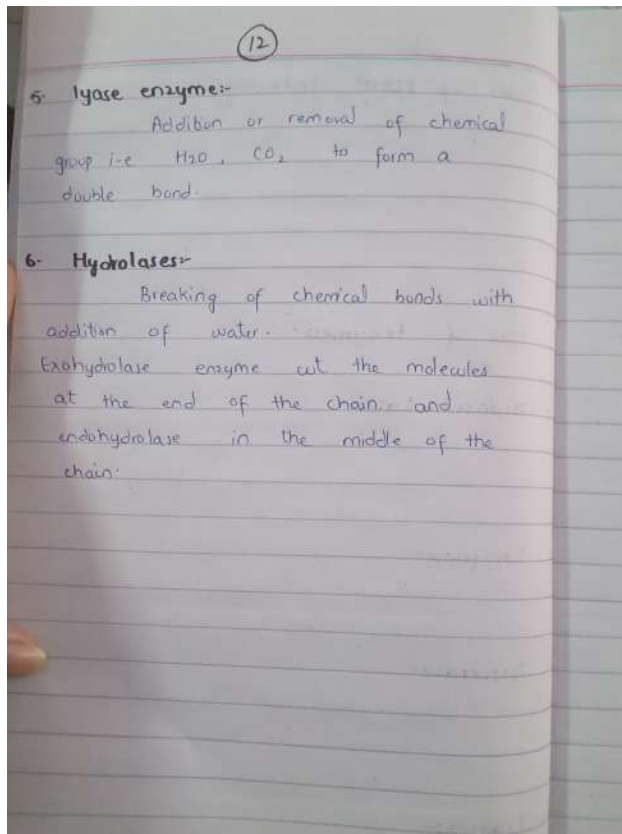 12
5. lyase enzyme:-
Addition or removal of chemical
group i-e H2O, CO2 to form a
double bond.
6- Hydrolases:-
Breaking of chemical bonds with
addition of water.
Exohydrolase enzyme cut the molecules
at the end of the chain and
endohydrolase in the middle of the
chain.